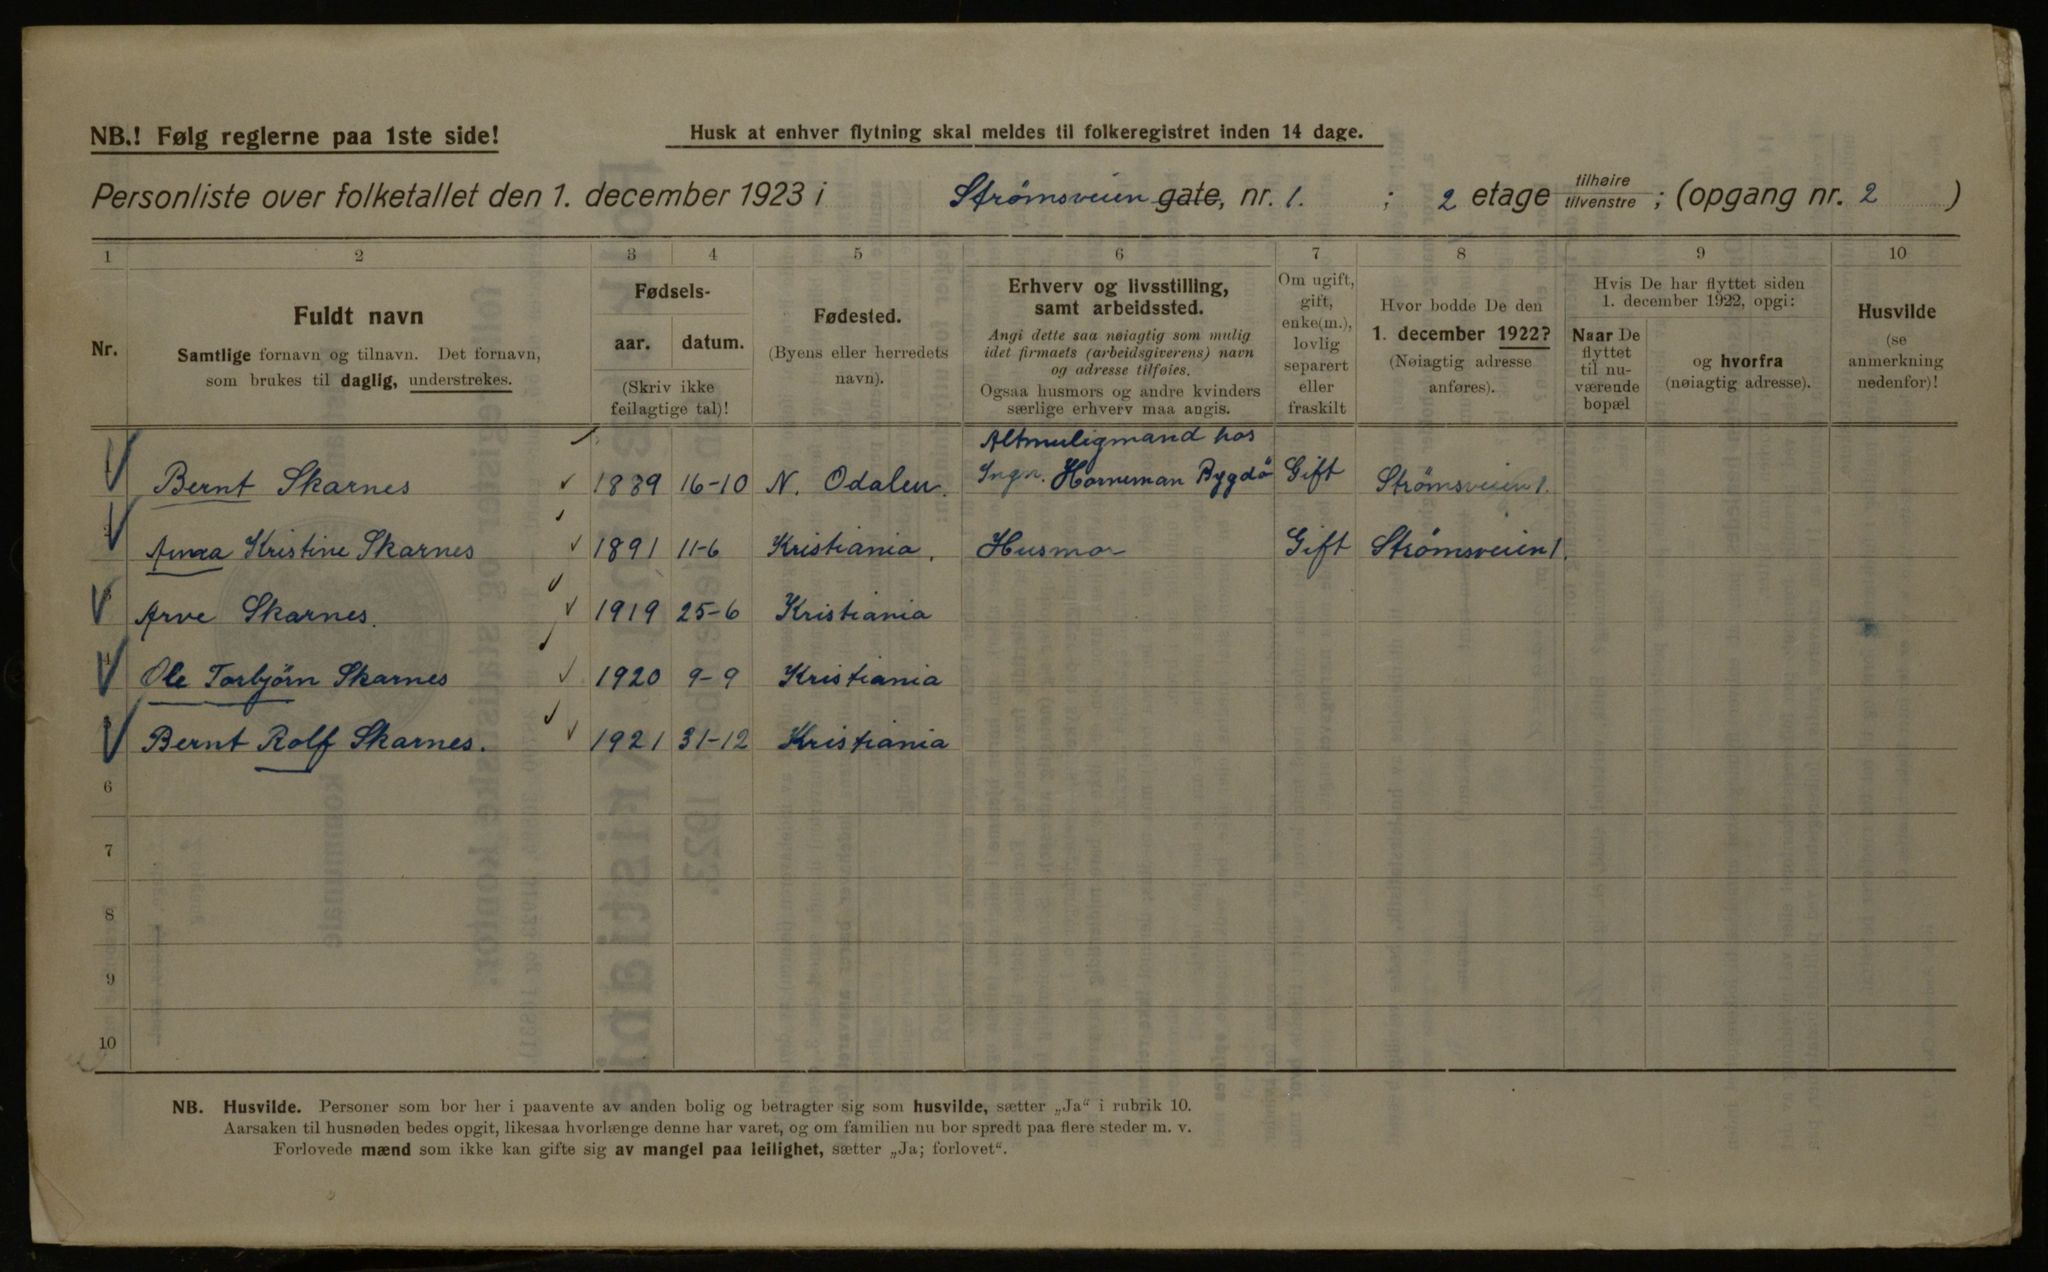 NB.! Følg reglerne paa 1ste side!
Husk at enhver flytning skal meldes til folkeregistret inden 14 dage.
Personliste over folketallet den 1. december 1923 i Strømsveien gate, nr. 1. ; 2 etage tilhøire tilvenstre ; (opgang nr. 2 )
1 2 3 4 5 6 7 8 9 10
Nr.
Fuldt navn
Samtlige fornavn og tilnavn. Det fornavn,
som brukes til daglig, understrekes.
Fødsels-
aar. datum.
(Skriv ikke
feilagtige tal)!
Fødested.
(Byens eller herredets
navn).
Erhverv og livsstilling,
samt arbeidssted.
Angi dette saa nøiagtig som mulig
idet firmaets (arbeidsgiverens) navn
og adresse tilføies.
Ogsaa husmors og andre kvinders
særlige erhverv maa angis.
Om ugift,
gift,
enke(m.),
lovlig
separert
eller
fraskilt
Hvor bodde De den
1. december 1922?
(Nøiagtig adresse
anføres).
Hvis De har flyttet siden
1. december 1922, opgi:
Naar De
flyttet
til nu-
værende
bopæl
og hvorfra
(nøiagtig adresse).
Husvilde
(se
anmerkning
nedenfor)!
Altmuligmand hos
1 Bernt Skarnes 1889 16-10 N. Odalen. Ingn. Horneman Bygdö Gift Strömsveien 1.
2 Anna Kristine Skarnes 1891 11-6 Kristiania. Husmor Gift Strömsveien 1.
3 Arve Skarnes. 1919 25-6 Kristiania
4 Ole Torbjörn Skarnes 1920 9-9 Kristiania
5 Bernt Rolf Skarnes. 1921 31-12 Kristiania
6
7
8
9
10
NB. Husvilde. Personer som bor her i paavente av anden bolig og betragter sig som husvilde, sætter „Ja“ i rubrik 10.
Aarsaken til husnøden bedes opgit, likesaa hvorlænge denne har varet, og om familien nu bor spredt paa flere steder m. v.
Forlovede mænd som ikke kan gifte sig av mangel paa leilighet, sætter „Ja; forlovet“.